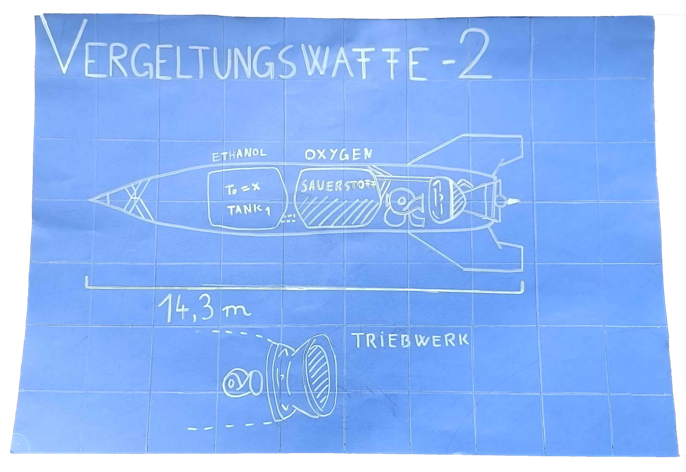 VERGELTUNGSWAFFE-2
ETHANOL OXYGEN
T₀ = x
TANK 1
SAUERSTOFF
14,3 m
TRIEBWERK